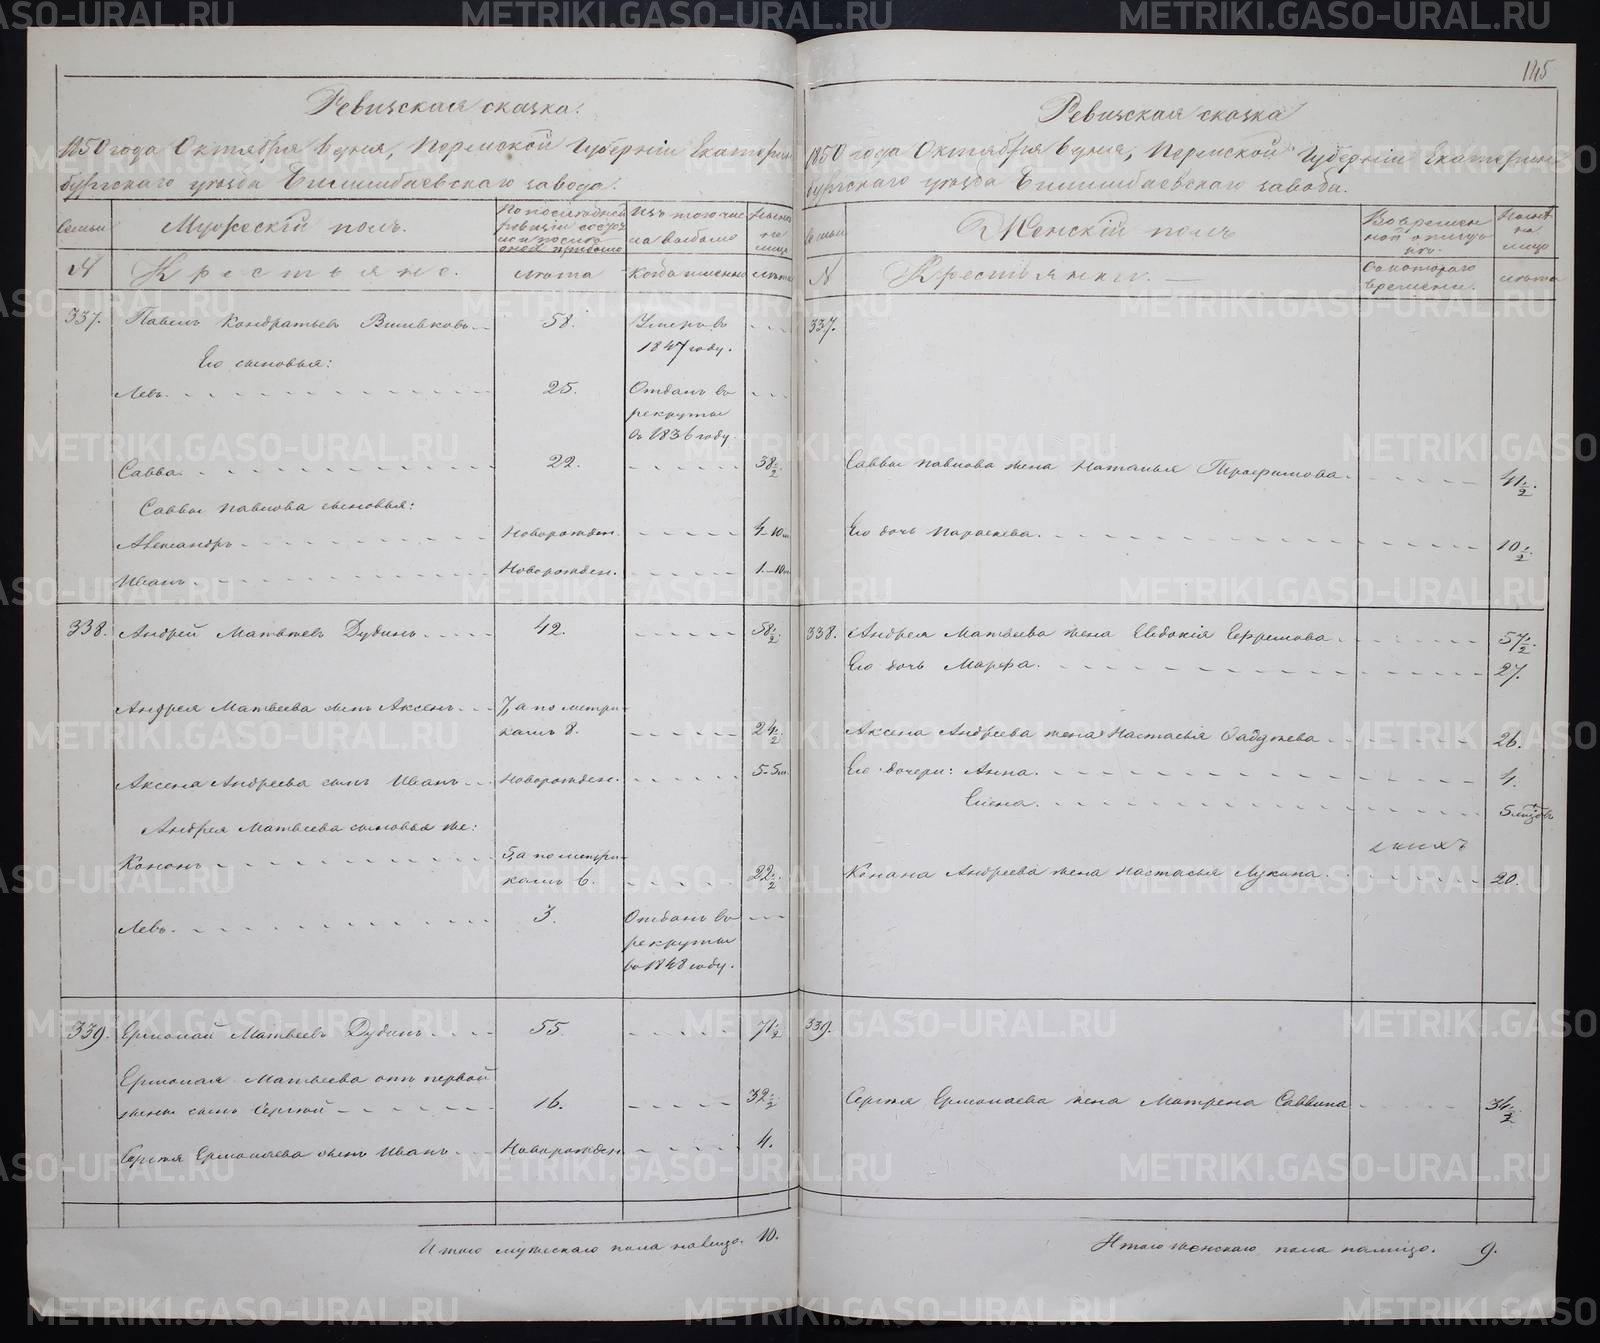 145
Ревизская сказка.
1850 года Октября дня, Пермской Губерніи Екатерин-
бургскаго уѣзда Билимбаевскаго завода.
Семьи
Мужескій полъ.
По послѣдней ревизіи состояло и послѣ оной прибыло
Изъ того числа выбыло
Нынѣ на лицо
№
Крестьяне.
лѣта
Когда именно
лѣта
337. Павелъ Кондратьевъ Вшивковъ 58. Умеръ въ
1847 году.
Его сыновья:
Левъ 25. Отданъ въ
рекруты
въ 1836 году.
Савва 22. 38½
Саввы Павлова сыновья:
Александръ Новорожден. 4-10м
Иванъ Новорожден. 1-10м
338. Андрей Матвѣевъ Дудинъ 42. 58½
Андрея Матвѣева сынъ Аксенъ 7, а по метри-
камъ 8. 24½
Аксена Андреева сынъ Иванъ Новорожден. 5-5м
Андрея Матвѣева сыновья же:
Кононъ 5, а по метри-
камъ 6. 22½
Левъ 3. Отданъ въ
рекруты
въ 1848 году.
339. Ермолай Матвѣевъ Дудинъ 55 71½
Ермолая Матвѣева отъ первой
жены сынъ Сергѣй 16. 32½
Сергѣя Ермолаева сынъ Иванъ Новорожден 4.
Итого мужескаго пола налицо. 10.
Ревизская сказка
1850 года Октября дня, Пермской Губерніи Екатерин-
бургскаго уѣзда Билимбаевскаго завода.
Семьи
Женскій полъ
Во времен-
ной отлуч-
кѣ.
Нынѣ
на
лицо
№
Крестьянки.
Съ котораго
времени.
лѣта
337.
Саввы Павлова жена Наталья Трофимова 41½
Его дочь Параскева 10½
338. Андрея Матвѣева жена Евдокія Ефремова 57½
Его дочь Марфа. 27.
Аксена Андреева жена Настасья Фадѣева 26.
Его дочери: Анна. 4.
Елена. 5 мѣсяцовъ
Конана Андреева жена Настасья Лукина 20.
339.
Сергѣя Ермолаева жена Матрена Саввина 34½
Итого женскаго пола налицо. 9.
METRIKI.GASO-URAL.RU